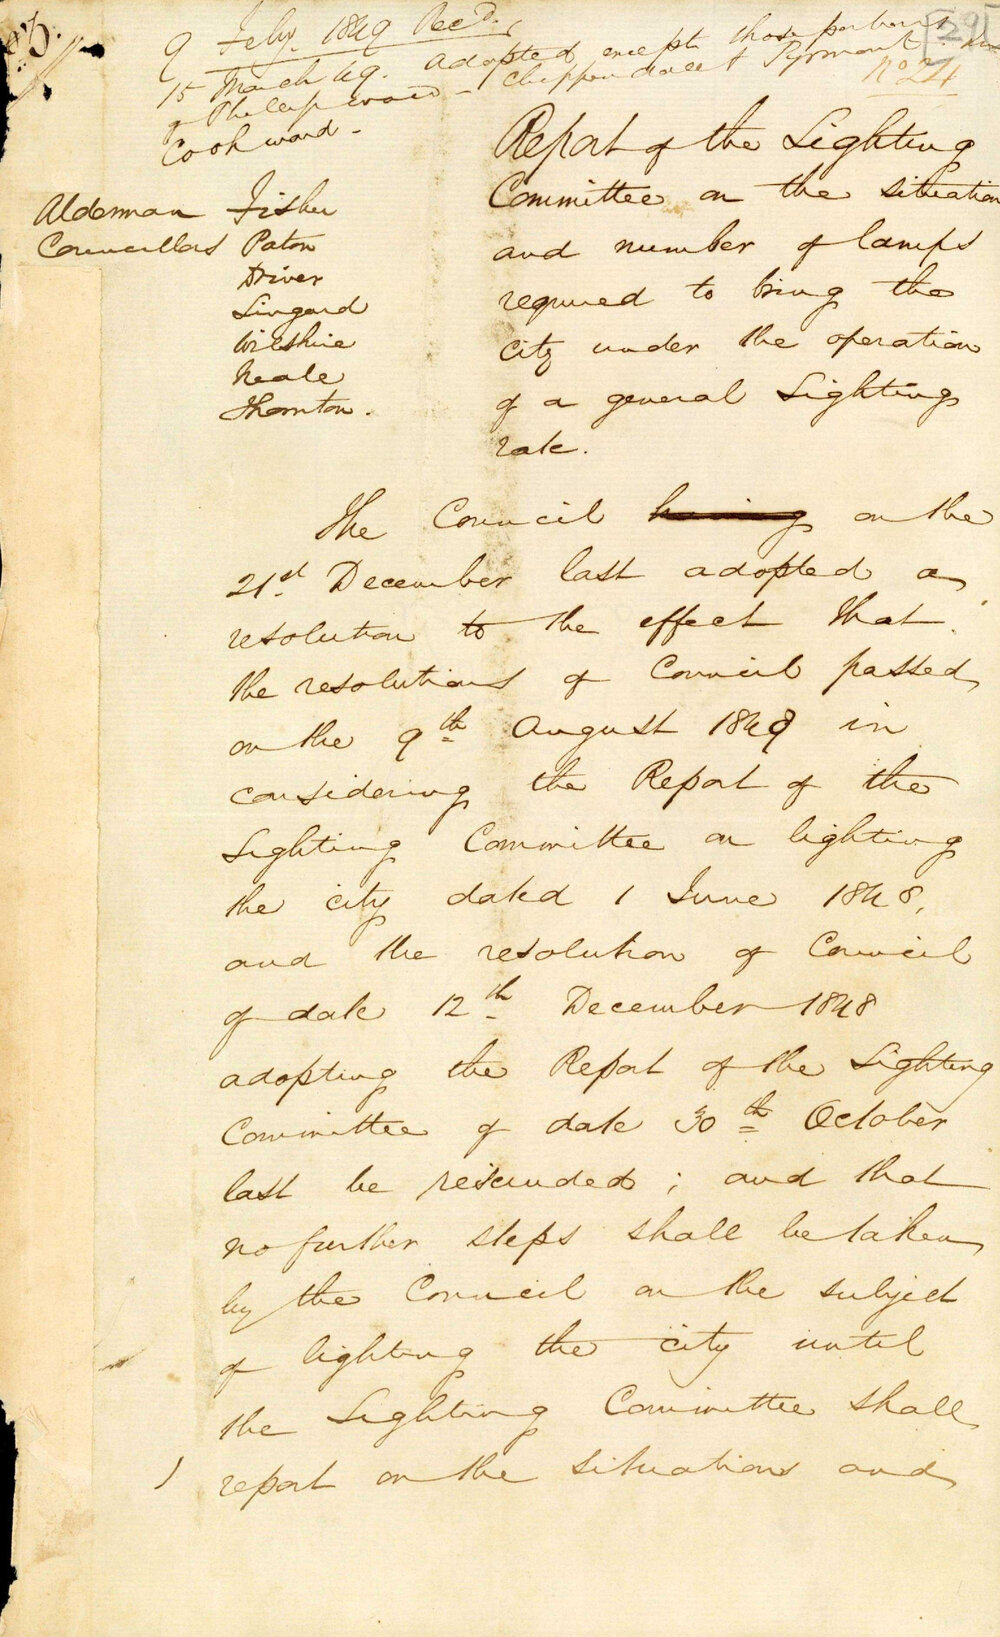 9 Feby. 1849 Recd.
15 March 49. Adopted except those portions
of Phillip ward - Chippendale & Pyrmont
Cook ward -
[29]
No 24
Report of the Lighting
Committee on the situation
and number of lamps
required to bring the
city under the operation
of a general Lighting
rate.
Alderman Fisher
Councillors Paton
Driver
Lingard
Wilshire
Neale
Thornton.
The Council having on the
21st. December last adopted a
resolution to the effect that
the resolutions of Council passed
on the 9th August 1848 in
considering the Report of the
Lighting Committee on lighting
the city dated 1 June 1848,
and the resolution of Council
of date 12th December 1848
adopting the Report of the Lighting
Committee of date 30th October
last be rescinded; and that
no further steps shall be taken
by the Council on the subject
of lighting the city until
the Lighting Committee shall
report on the situations and